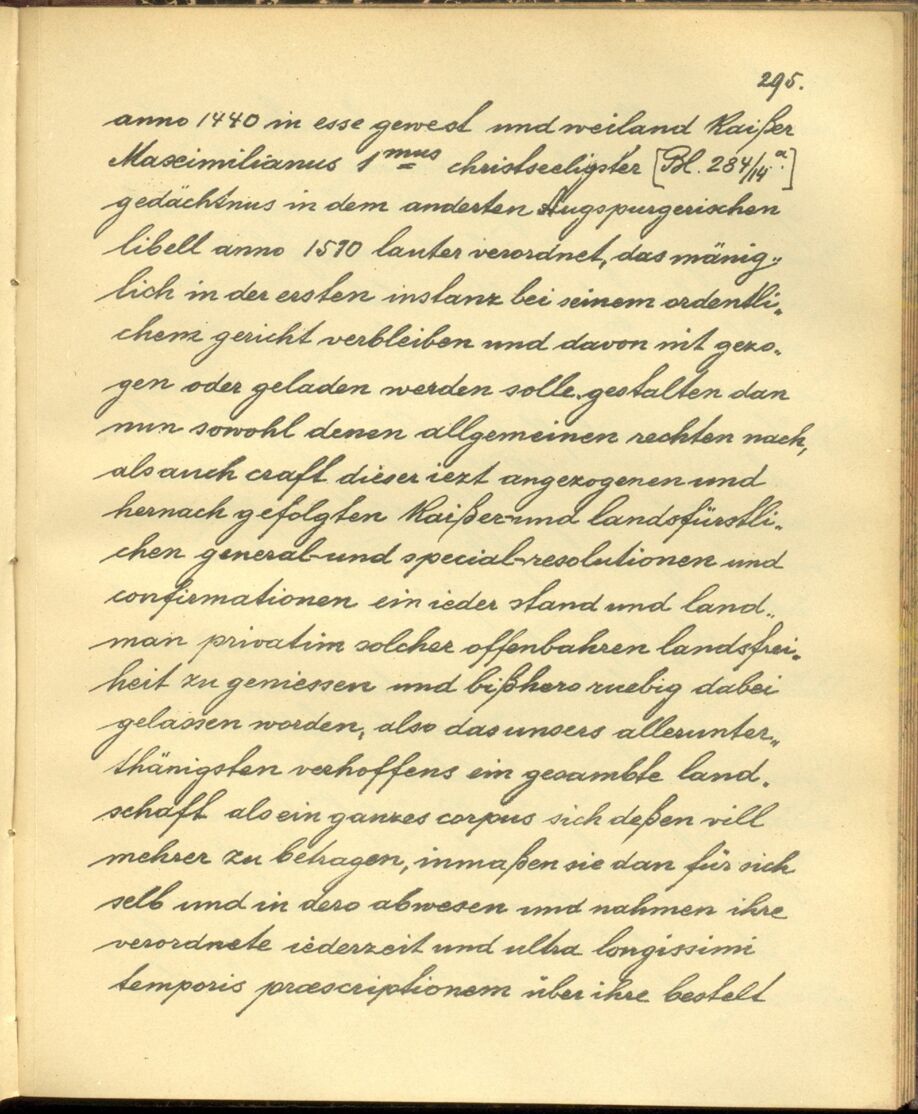 295.
anno 1440 in esse gewest und weiland Kaißer
Maximilianus 1mus christseeligster [Bl. 284/14 a.]
gedächtnus in dem anderten Augspurgerischen
libell anno 1510 lauter verordnet, das mänig„
lich in der ersten instanz bei seinem ordentli„
chem gericht verbleiben und davon nit gezo„
gen oder geladen werden solle. gestalten dan
nun sowohl denen allgemeinen rechten nach,
als auch craft dieser iezt angezogenen und
hernach gefolgten Kaißer-und landsfürstli„
chen general-und special-resolutionen und
confirmationen ein ieder stand und land„
man privatim solcher offenbahren landsfrei„
heit zu geniessen und bißhero ruebig dabei
gelassen worden, also das unsers allerunter„
thänigsten verhoffens ein gesambte land„
schaft als ein ganzes corpus sich deßen vill
mehrer zu betragen, inmaßen sie dan für sich
selb und in dero abwesen und nahmen ihre
verordnete iederzeit und ultra longissimi
temporis præscriptionem über ihre bestelt